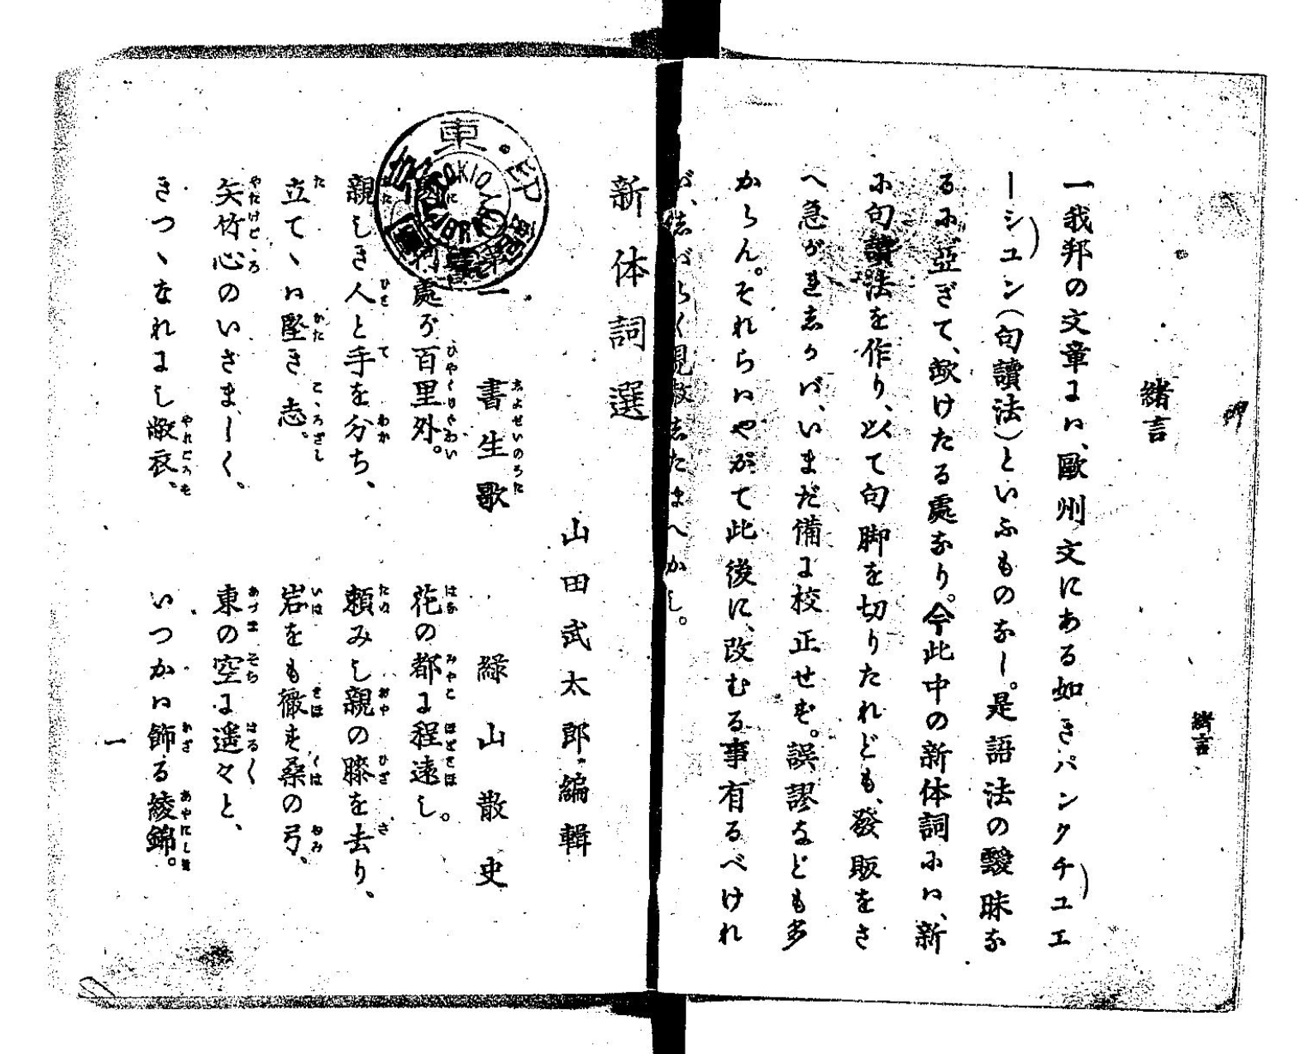 緒言
一我邦の文章には、歐州文にある如きパンクチユエ
ーシユン(句讀法)といふものなし。是語法の曖昧な
るに亞ぎて、欠けたる處なり。今此中の新体詞には、新
に句讀法を作り、以て句脚を切りたれども、發販をさ
へ急がれしかバ、いまだ備に校正せず。誤謬なども多
からん。それらはやがて此後に、改むる事有るべけれ
ば、志ばらく見故志たまへかし。
緒言
新体詞選
山田武太郎編輯
一 書生歌 綠山散史
處ぞ百里外。 花の都は程遠し。
親しき人と手を分ち、 賴みし親の膝を去り、
立てゝは堅き志。 岩をも徹す桑の弓、
矢竹心のいさましく、 東の空に遥々と、
きつゝなれにし敝衣、 いつかは飾る綾錦。
一